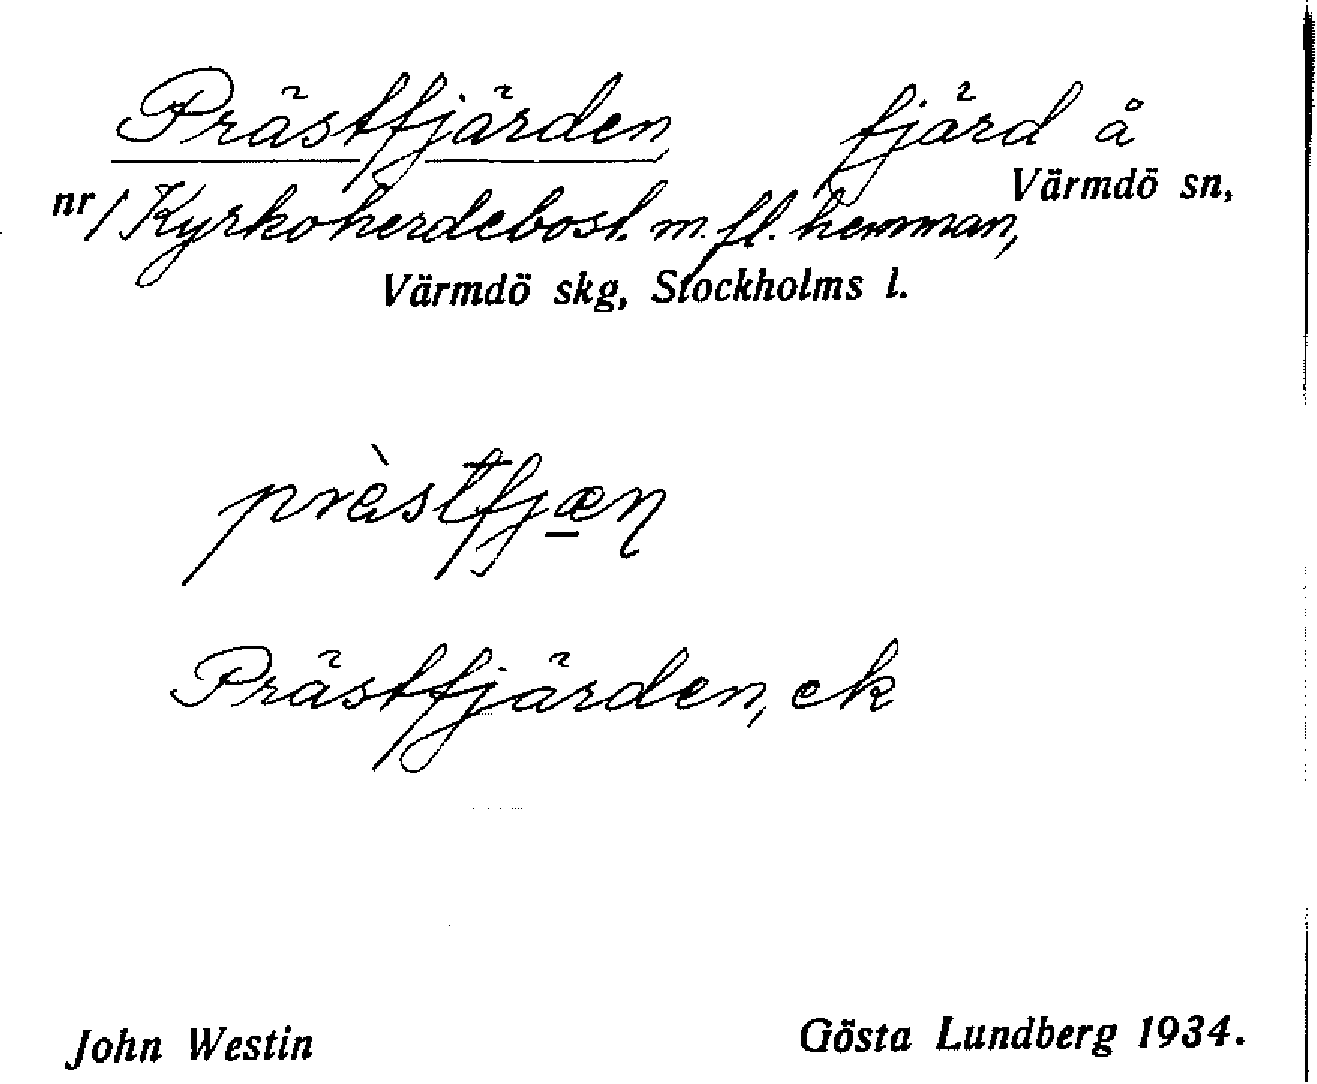 Prästfjärden, fjärd å
Värmdö sn,
nr 1 Kyrkoherdebost. m. fl. hemman,
Värmdö skg, Stockholms l.
prὲstfjæ̱ɳ
Prästfjärden, ek
John Westin
Gösta Lundberg 1934.